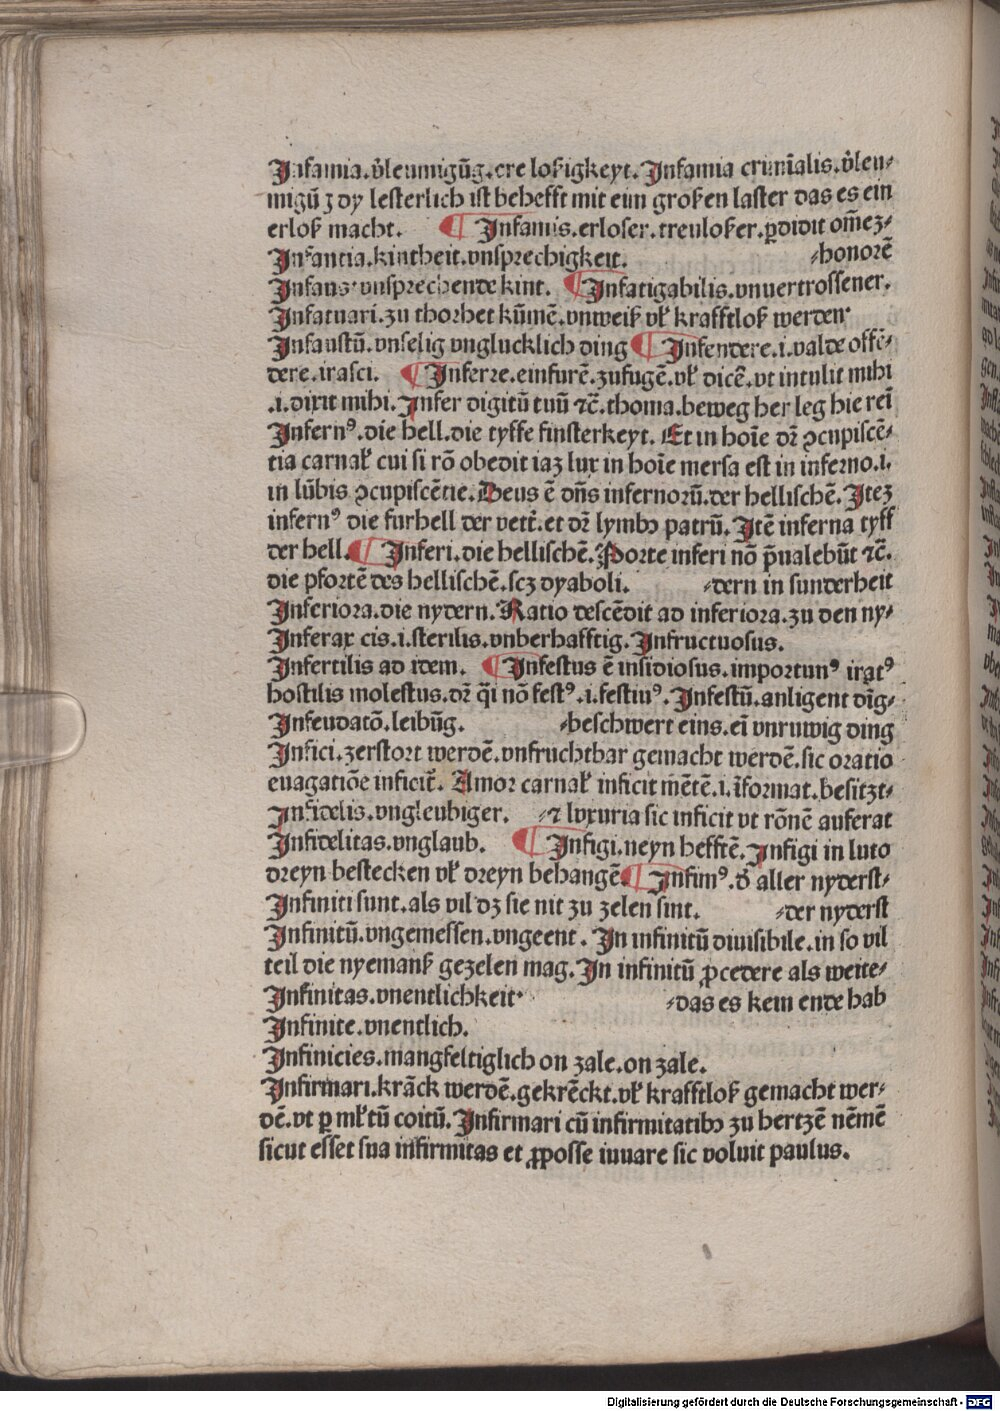 Infamia.v̓leumigūg.ere loßigkeyt. Infamia crimīalis.v̓leu⸗
migū ʒ dy lesterlich ist behefft mit eim großen laster das es ein
erloß macht. ¶ Infamis.erloser.treuloßer.ꝑdidit om̄eʒ⸗
Infantia.kintheit.vnsprechigkeit. ⸗honorē
Infans·vnsprechende kint. ¶ Infatigabilis.vnuertrossener.
Infatuari.zu thorhet kūmē.vnweiß vł krafftloß werden·
Infaustū.vnselig vnglucklich ding ¶ Infendere.i.valde offē⸗
dere.irasci. ¶ Inferre.einfurē.zufugē.vł dicē.vt intulit mihi
.i.dixit mihi.Infer digitū tuū ⁊c̄.thoma.beweg her leg hie rei᷑
Infernꝰ.die hell.die tyffe finsterkeyt. Et in hoīe dr̄ ꝯcupiscē⸗
tia carnał cui si rō obedit iaʒ lux in hoīe mersa est in inferno.i.
in lūbis ꝯcupiscētie.Deus ē dn̄s infernorū.der hellischē.Iteʒ
infernꝰ die furhell der vett̄.et dr̄ lymbꝰ patrū.Itē inferna tyff
der hell.¶ Inferi.die hellischē.Porte inferi nō p̄ualebūt ⁊c̄.
die pfortē des hellischē.scʒ dyaboli. ⸗dern in sunderheit
Inferiora.die nydern.Ratio descēdit ad inferiora.zu den ny⸗
Inferax cis.i.sterilis.vnberhafftig.Infructuosus.
Infertilis ad idem. ¶ Infestus ē insidiosus.importunꝰ iratꝰ
hostilis molestus.dr̄ q̄i nō festꝰ.i.festiuꝰ.Infestū.anligent dīg⸗
Infeudatō.leibūg. ⸗beschwert eins.ei᷑ vnruwig ding
Infici.zerstort werdē.vnfruchtbar gemacht werdē.sic oratio
euagatiōe inficit̄. Amor carnał inficit mētē.i.īformat.besitzt⸗
Infidelis.vngleubiger. ⸗⁊ luxuria sic inficit vt rōnē auferat
Infidelitas.vnglaub. ¶ Infigi.neyn hefftē.Infigi in luto
dreyn bestecken vł dreyn behangē ¶ Infimꝰ.d̓ aller nyderst⸗
Infiniti sunt.als vil dʒ sie nit zu zelen sint. ⸗der nyderst
Infinitū.vngemessen.vngeent. In infinitū diuisibile.in so vil
teil die nyemanß gezelen mag.In infinitū ꝓcedere als weite⸗
Infinitas.vnentlichkeit· ⸗das es kein ende hab
Infinite.vnentlich.
Infinicies.mangfeltiglich on zale.on zale.
Infirmari.krāck werdē.gekrēckt.vł krafftloß gemacht wer⸗
dē.vt ꝑ mł'tū coitū.Infirmari cū infirmitatibꝰ zu hertzē nēmē
sicut esset sua infirmitas et ꝓposse iuuare sic voluit paulus.
Digitalisierung gefördert durch die Deutsche Forschungsgemeinschaft - DFG